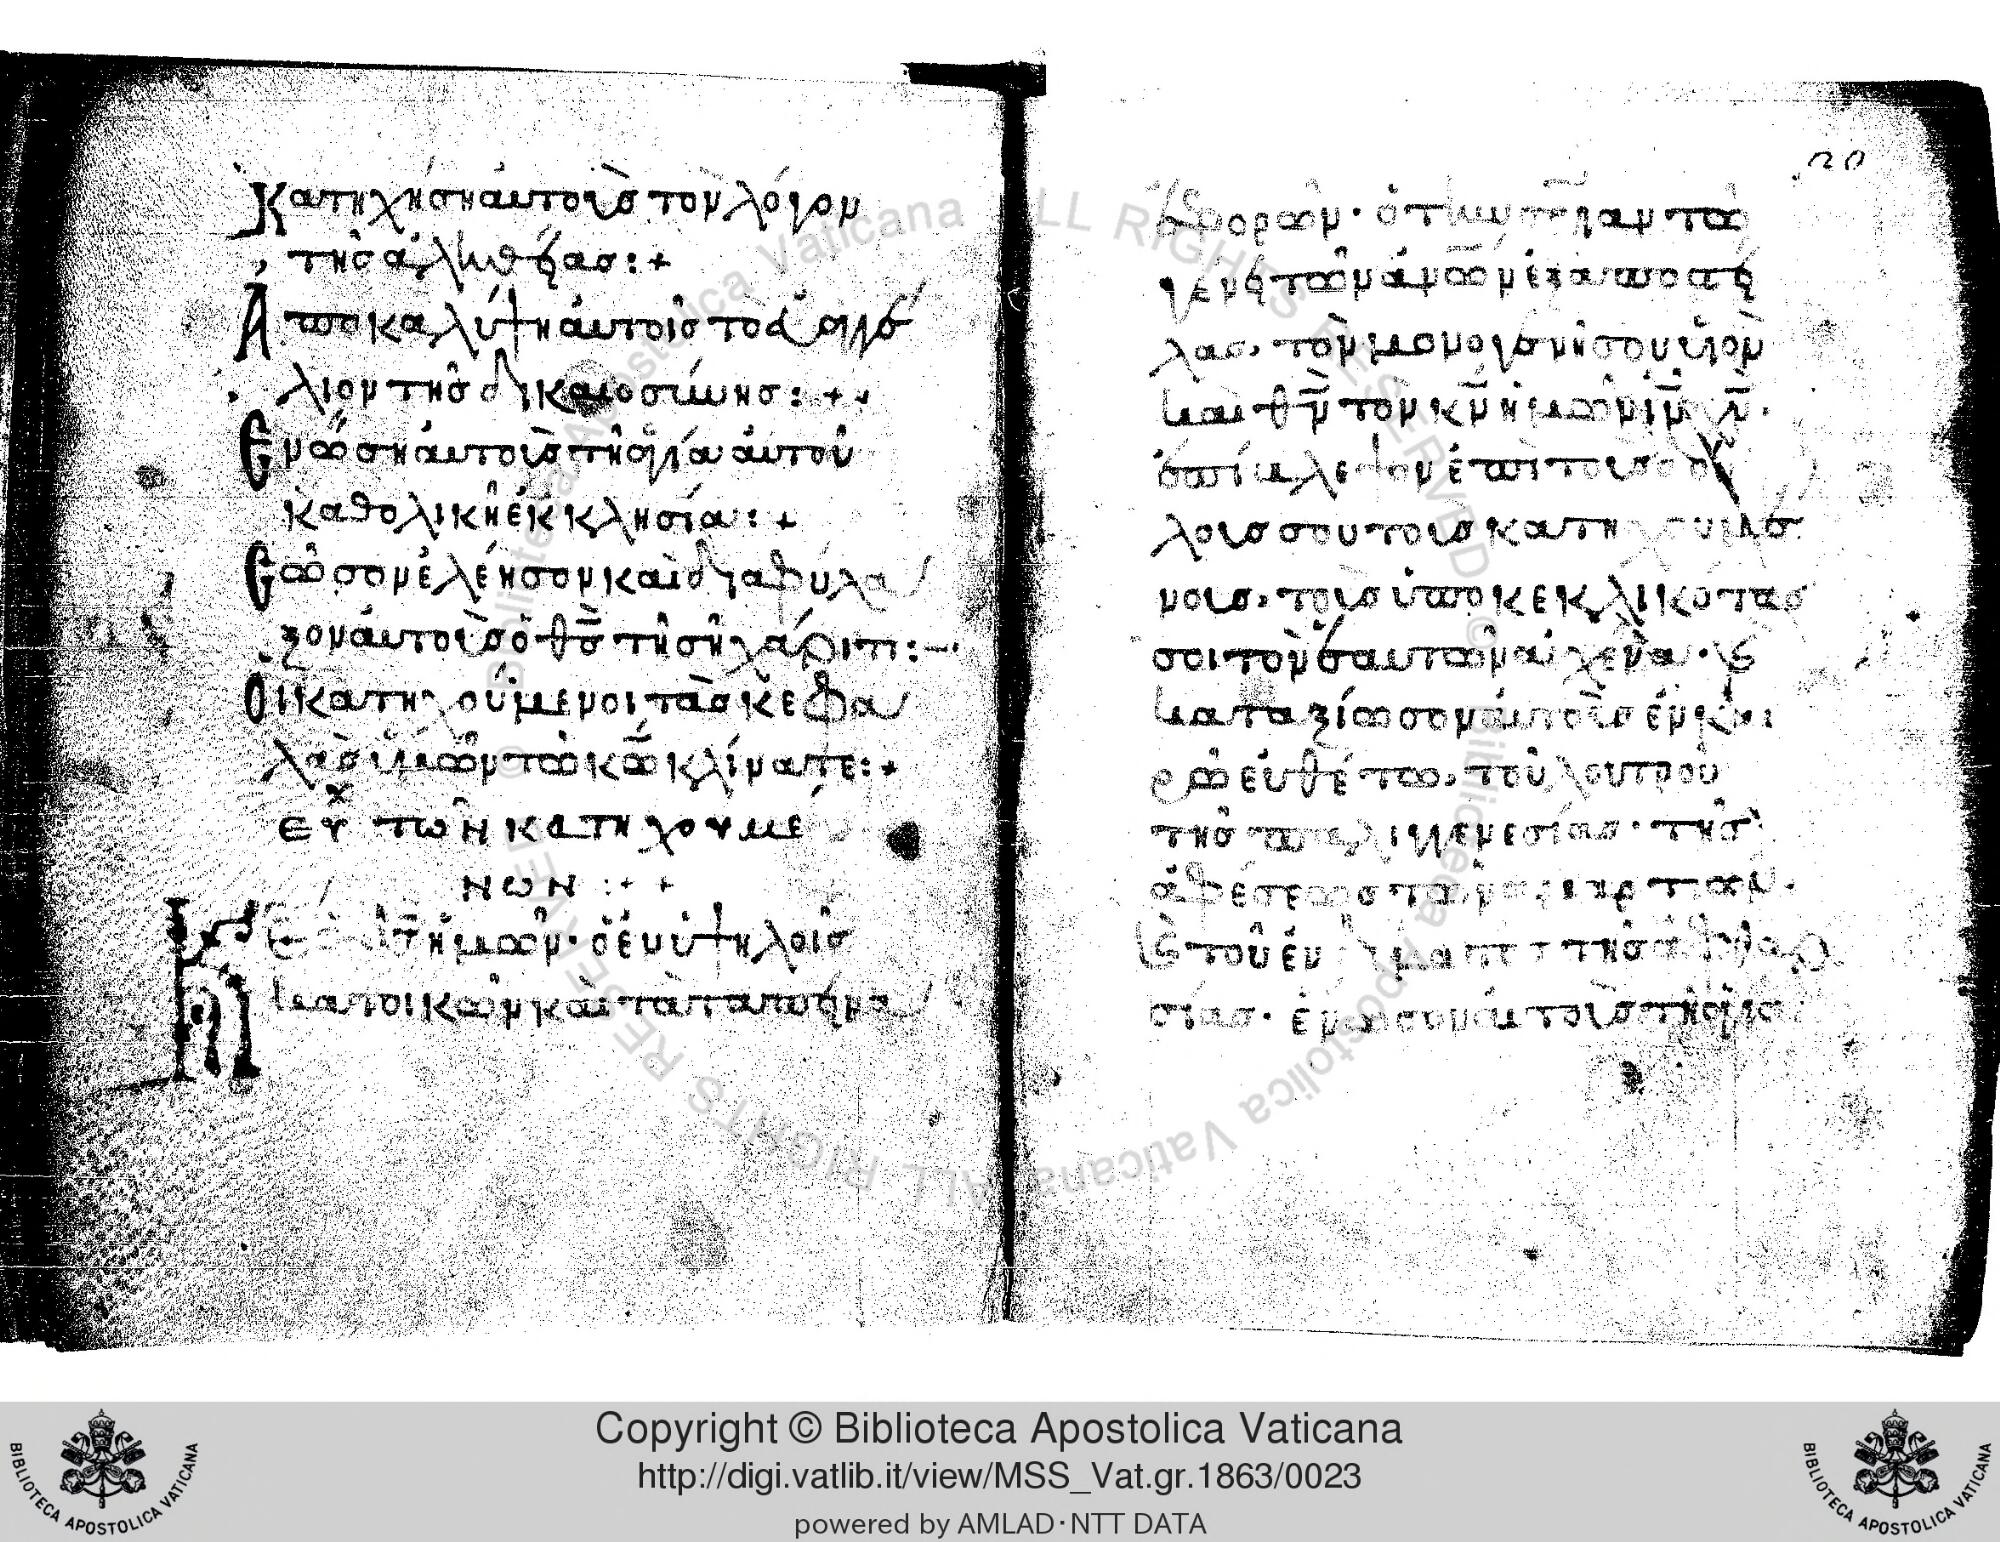 Κατηχήση ἀυτοὺς τὸν λόγον
τῆς ἀληθείας : +
Ἀποκαλύψη ἀυτοῖς τὸ ἐυαγγέ
λιον τῆς δικαιοσύνης : +
Ἑνώση ἀυτοὺς τῆ ἁγία ἀυτοῦ
καθολικῆ ἐκκλησία : +
Σῶσον ἐλέησον καὶ διαφύλα
ξον ἀυτοὺς ὁ θ̅ς̅ τῆ σῆ χάριτι : –
Οἱ κατηχούμενοι τὰς κεφα
λὰς ὑμῶν τῶ κ̅ω̅ κλίνατε : +
ΕΥΧ ΤΩΝ ΚΑΤΗΧΟΥΜΕ
ΝΩΝ : + +
Κ̅Ε̅ ὁ θ̅ς̅ ἡμῶν · ὁ ἐν ὑψηλοῖς
κατοικῶν καὶ τὰ ταπεινὰ
20
ἐφορῶν · ὁ τὴν σ̅ρ̅ιαν τῶ
γένει τῶν ἀ̅ν̅ω̅ν̅ ἐξαποστεί
λας, τὸν μονογενῆ σου υἱὸν
καὶ θ̅ν̅ τὸν κ̅ν̅ ἡμῶν ι̅ν̅ χ̅ν̅ ·
ἐπίβλεψον ἐπὶ τοὺς δού
λους σου τοὺς κατηχουμέ
νους, τοὺς ὑποκεκλικότας
σοι τὸν ἑαυτῶν ἀυχένα · καὶ
καταξίωσον ἀυτοὺς ἐν και
ρῶ ἐυθέτω, τοῦ λουτροῦ
τῆς παλιγγενεσίας · τῆς
ἀφέσεως τῶν ἁμαρτιῶν ·
καὶ τοῦ ἐνδύματος τῆς ἀφθαρ
σίας · ἕνωσον ἀυτοὺς τῆ ἁγία
Copyright © Biblioteca Apostolica Vaticana
http://digi.vatlib.it/view/MSS_Vat.gr.1863/0023
powered by AMLAD·NTT DATA
BIBLIOTECA APOSTOLICA VATICANA
BIBLIOTECA APOSTOLICA VATICANA